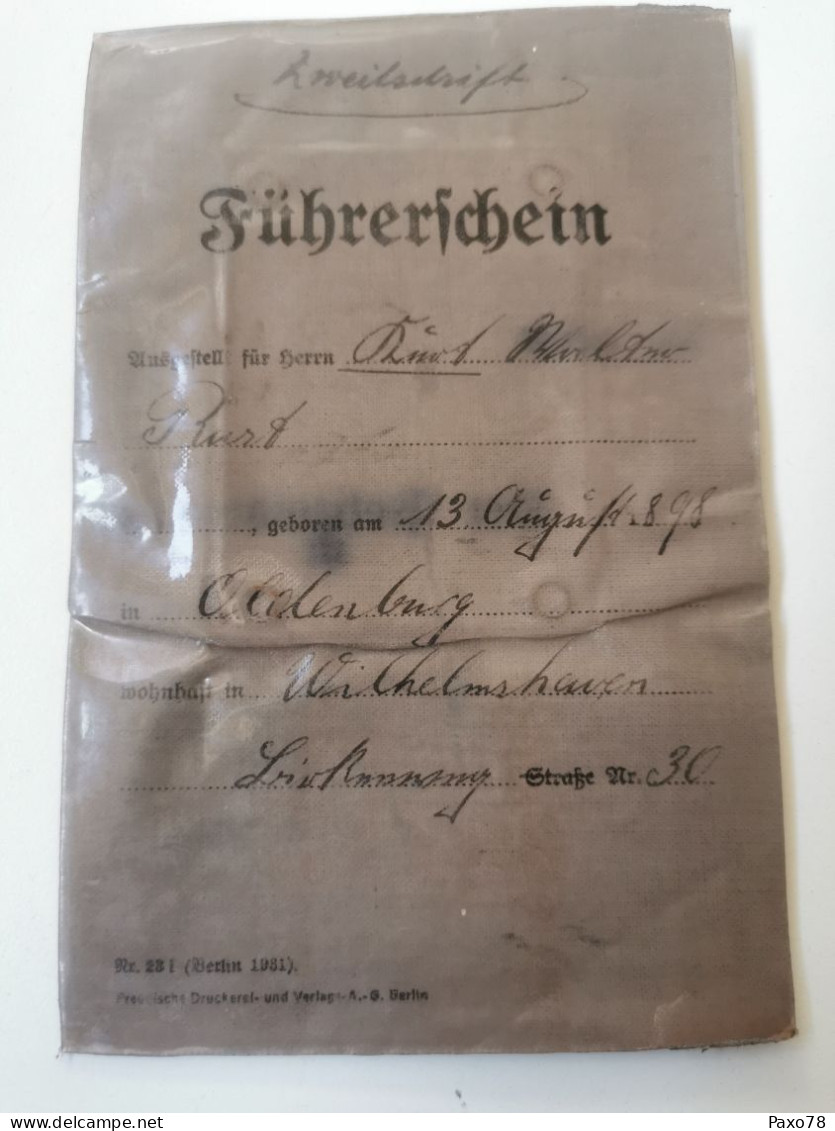 Zweitschrift
Führerschein
Ausgestellt für Herrn Kurt Walter
Kurt
, geboren am 13 August 898
in Oldenburg
wohnhaft in Wilhelmshaven
Birkenweg Straße Nr. 30
Nr. 23 f (Berlin 1931).
Preußische Druckerei- und Verlags-A.-G. Berlin
Paxo78